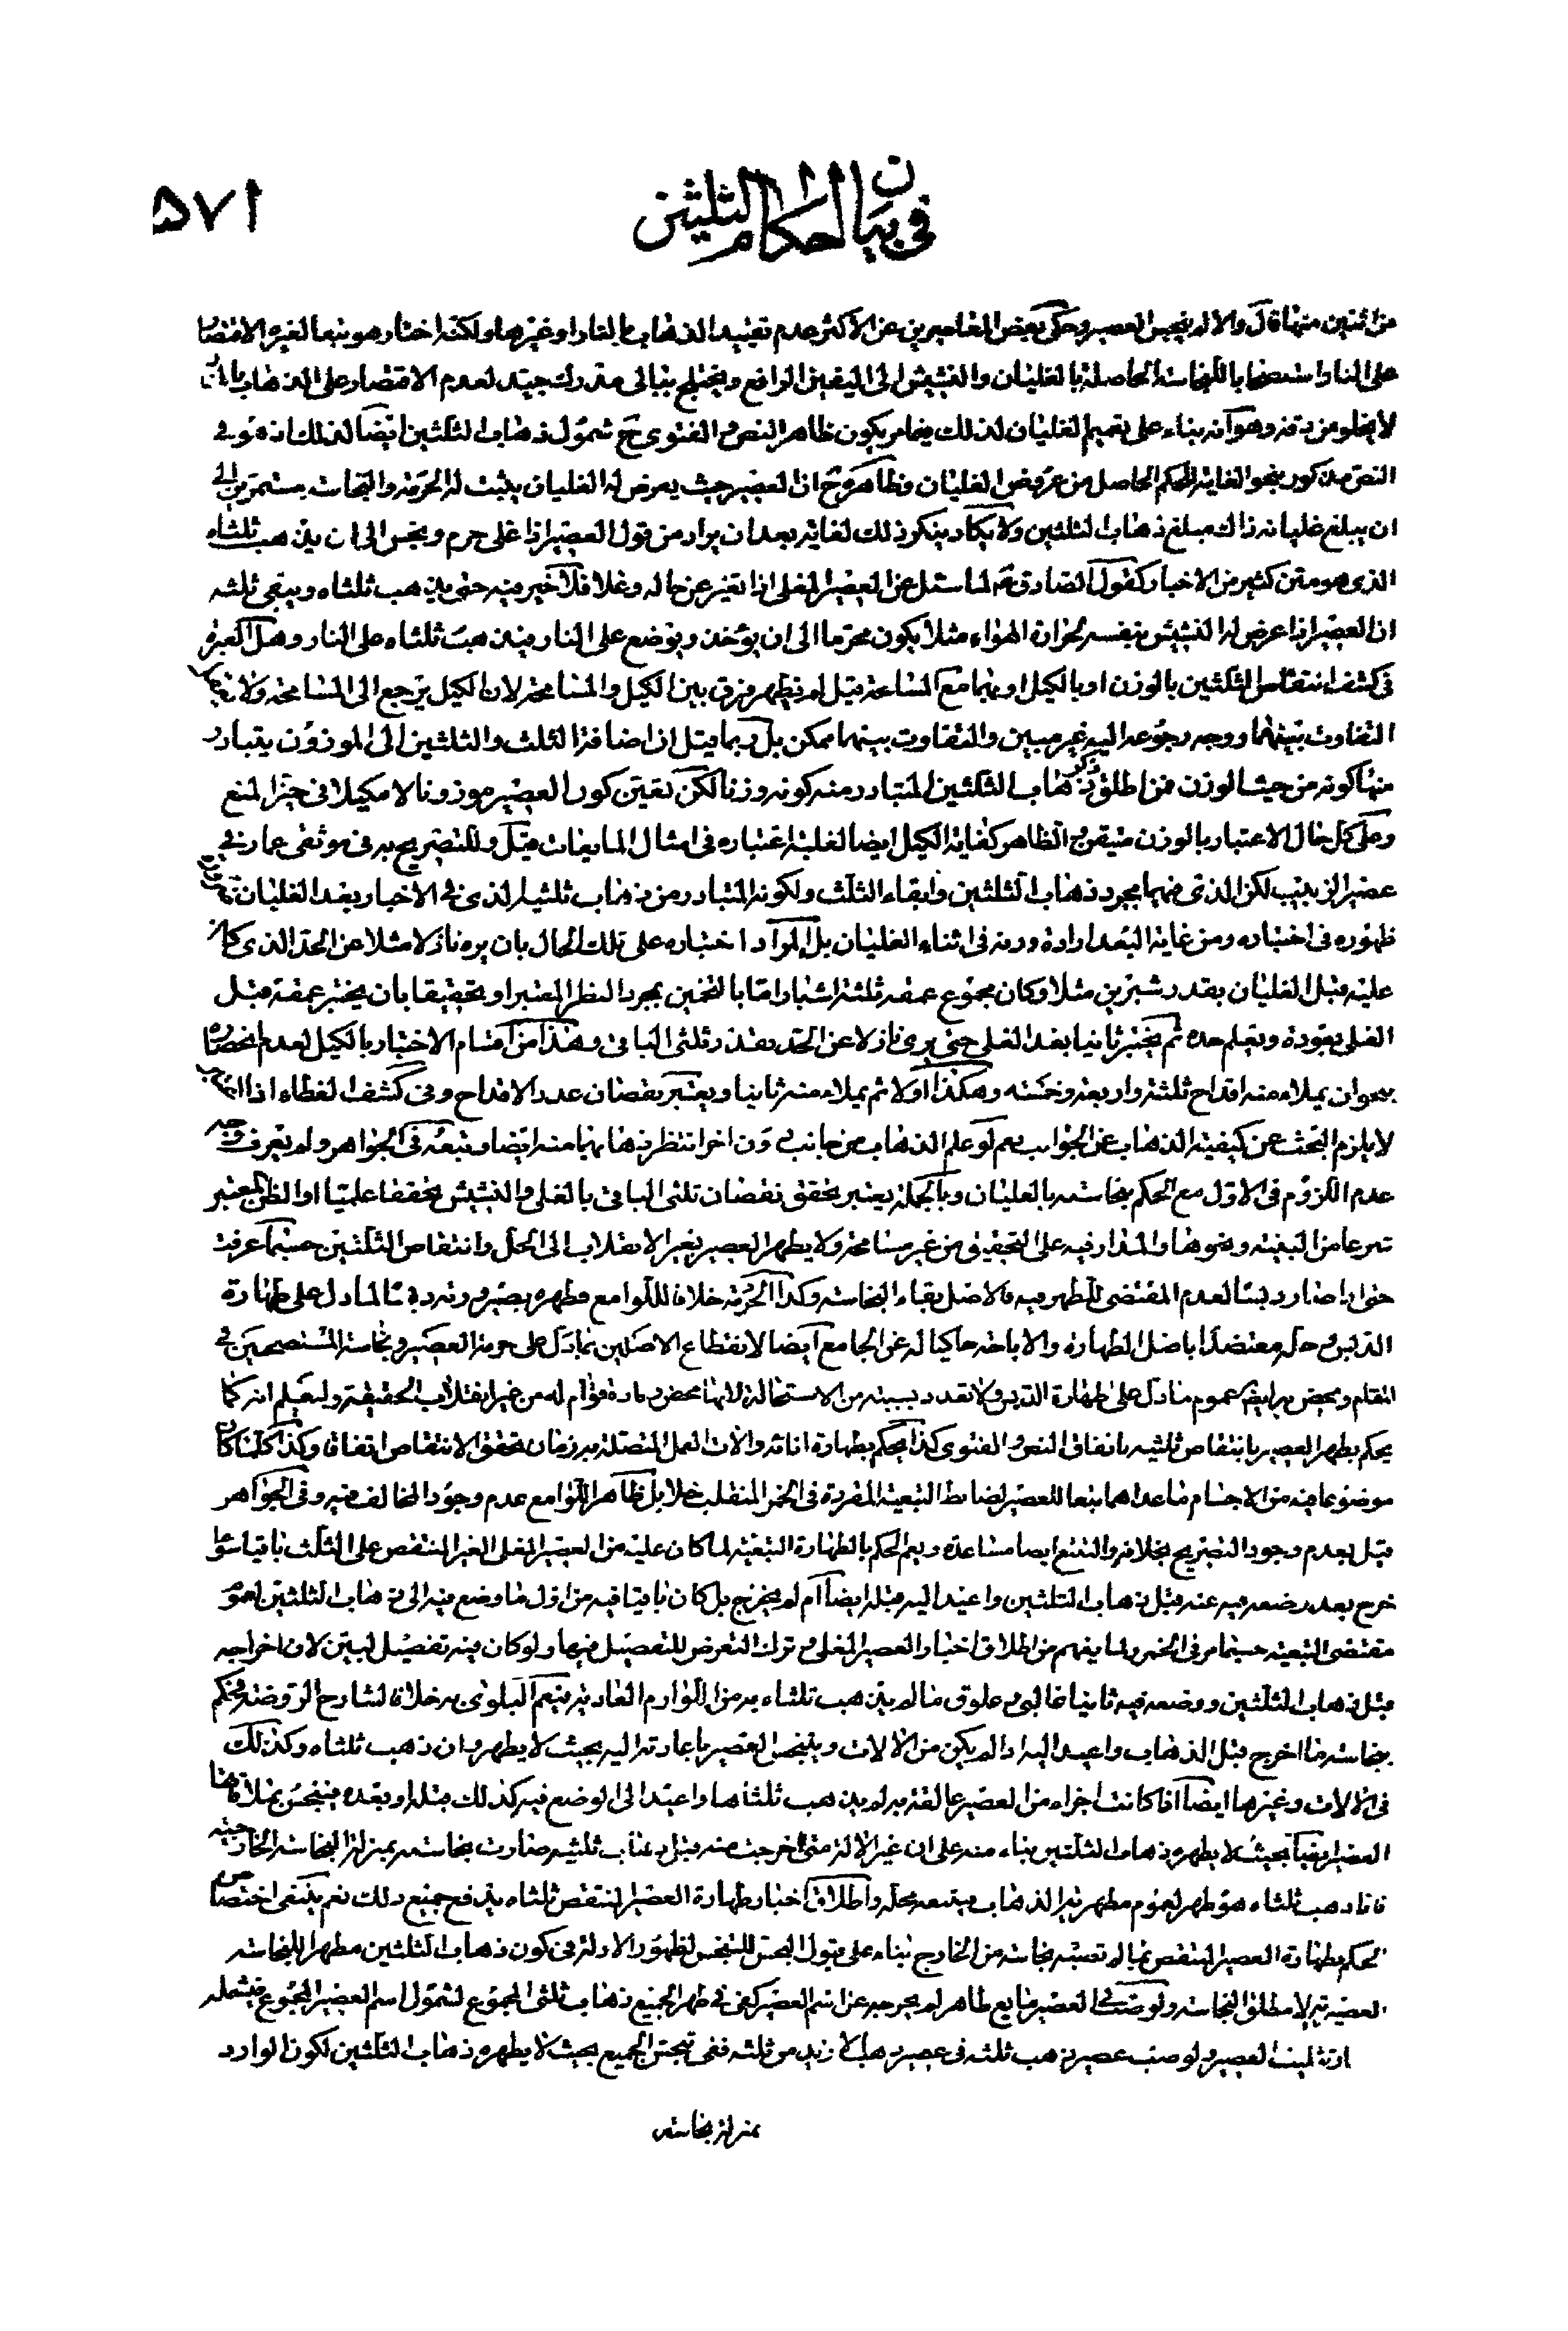 في بيان احكام الثلثين
٥٧١
من اثنين منها قال والا لم ينجس العصير وحكى بعض المعاصرين عن الاكثر عدم تقييد الذهاب بالنار او غيرها ولكنه اختار هو تبعا لغيره الاقتصار
على النار استصحابا للنجاسة الحاصلة بالغليان والنشيش الى اليقين الرافع ويختلج ببالى مدرك جيد لعدم الاقتصار على الذهاب بالنار
لا يخلو من دقة وهو انه بناء على تعميم الغليان لذلك يكون ظاهر النص والفتوى ح شمول ذهاب الثلثين ايضا لذلك اذ هو في
النص مذكور بنحو الغاية للحكم الحاصل من عروض الغليان وظاهره ح ان العصير حيث يعرض له الغليان يثبت له الحرمة والنجاسة مستمرين الى
ان يبلغ غليانه ذالك مبلغ ذهاب الثلثين ولا يكاد ينكر ذلك لغاية بعد ان يراد من قول العصير اذا غلى حرم وينجس الى ان يذهب ثلثاه
الذى هو متن كثير من الاخبار كقول الصادق ع لما سئل عن العصير المغلى اذا تغير عن حاله وغلا فلا خير فيه حتى يذهب ثلثاه ويبقى ثلثه
ان العصير اذا عرض له النشيش بنفسه لحرارة الهواء مثلا يكون محرما الى ان يؤخذ ويوضع على النار فيذهب ثلثاه على النار وهل العبرة
في كشف انتقاص الثلثين بالوزن او بالكيل او بهما مع المساحة قيل لم يظهر فرق بين الكيل والمسامحة لان الكيل يرجع الى المسامحة
التفاوت بينهما ووجه رجوعه اليه غير مبين والتفاوت بينهما ممكن بل ربما قيل ان اضافة الثلث والثلثين الى الموزون يتبادر
منها كونه من حيث الوزن فمن اطلق ذكر ذهاب الثلثين المتبادر منه كونه وزنا لكن تعين كون العصير موزونا لا مكيلا في حيز المنع
وعلى كل حال الاعتبار بالوزن متيقن والظاهر كفاية الكيل ايضا لغلبة اعتباره في امثال المايعات قيل وللتصريح به في موثقى عمار في
عصير الزبيب لكن الذى فيهما مجرد ذهاب الثلثين وابقاء الثلث ولكونه المتبادر من ذهاب ثلثيه الذى في الاخبار بعد الغليان
ظهوره في اختباره ومن غاية البعد ارادة وزنه في اثناء الغليان بل المراد اختباره على تلك الحال بان يره نازلا مثلا عن الحد الذى كان
عليه قبل الغليان بقدر شبرين مثلا وكان مجموع عمقه ثلثة اشبار اما بالتخمين بمجرد النظر المعتبر او تحقيقا بان يختبر عمقه قبل
الغلى بعودة ويعلم حده ثم يختبر ثانيا بعد الغلى حتى يرى نازلا عن الحد بقدر ثلثى الباقى وهذا من اقسام الاختبار بالكيل لعدم انحصاره
بنحو ان يملاء منه اقداح ثلثة واربعة وخمسة وهكذا اولا ثم يملاء منه ثانيا ويعتبر نقصان عدد الاقداح وفى كشف الغطاء اذا
لا يلزم البحث عن كيفية الذهاب عن الجوانب نعم لو علم الذهاب من جانب دون اخر انتظر ذهابهما منه ايضا وتبعه في الجواهر ولم يعرف وجه
عدم اللزوم في الاول مع الحكم بنجاسته بالغليان وبالجملة يعتبر تحقق نقصان ثلثى الباقى بالغلى والنشيش تحققا علميا او الظن المعتبر
شرعا من البينة ونحوها والمدار فيه على التحقيق من غير مسامحة ولا يطهر العصير بغير الانقلاب الى الخل وانتقاص الثلثين حسبما عرفت
حتى اذا صار دبسا لعدم المقتضى للطهر فيه فالاصل بقاء النجاسة وكذا الحرمة خلافا للوامع فطهره بصيرورته دبسا لما دل على طهارة
الدبس وحله معتضدا باصل الطهارة والاباحة حاكيا له عن الجامع ايضا لانقطاع الاصلين بما دل على حرمة العصير ونجاسة المستصحبين في
المقام ويخص به ايضا عموم ما دل على طهارة الدبس ولا تعد دبسيته من الاستحالة لانها محض قوام له من غير انقلاب الحقيقة وليعلم انه كما
يحكم بطهر العصير بانتقاص ثلثيه باتفاق النص والفتوى كذا يحكم بطهارة انائه والات العمل المتصلة به زمان تحقق الانتقاص اتفاقا وكذا كلما كان
موضوعا فيه من الاجسام ما عداهما تبعا للعصير لضابط التبعية المقررة في الخمر المنقلب خلا بل ظاهر اللوامع عدم وجود المخالف فيه وفى الجواهر
قيل بعدم وجود التصريح بخلافه والتتبع ايضا مساعده ويعم الحكم بالطهارة التبعية لما كان عليه من العصير المغلى الغير المنتقص على الثلث باقيا سواء
خرج بعد وضعه فيه عنه قبل ذهاب الثلثين واعيد اليه قبله ايضا ام لم يخرج بل كان باقيا فيه من اول ما وضع فيه الى ذهاب الثلثين لعموم
مقتضى التبعية حسبما مر في الخمر ولما يفهم من اطلاق اخبار العصير المغلى و ترك التعرض للتفصيل فيها ولو كان فيه تفصيل لبين لان اخراجه
قبل ذهاب الثلثين ووضعه فيه ثانيا غالبى وعلوق ما لم يذهب ثلثاه به من اللوازم العادية فيعم البلوى به خلافا لشارح الروضة فحكم
بنجاسة ما اخرج قبل الذهاب واعيد اليه اذا لم يكن من الالات وينجس العصير باعادته اليه بحيث لا يطهر وان ذهب ثلثاه وكذلك
في الالات وغيرها ايضا اذا كانت اجزاء من العصير عالقة به لم يذهب ثلثاها واعيد الى الوضع فيه كذلك قبله او بعده فينجس بملاقاتها
العصير ايضا بحيث لا يطهره ذهاب الثلثين بناء منه على ان غير الالة متى اخرجت منه قبل ذهاب ثلثيه صارت نجاسته بمنزلة النجاسة الخارجية
فاذا ذهب ثلثاه هو طهر لعموم مطهرية الذهاب واطلاق اخبار طهارة العصير المنتقص ثلثاه يدفع جميع ذلك نعم يبقى اختصاص
الحكم بطهارة العصير المنتقص بما لم تصبه نجاسة من الخارج بناء على قبول النجس للتنجس لظهور الادلة في كون ذهاب الثلثين مطهرا للنجاسة
العصيرية لا مطلق النجاسة ولو صب في العصير مايع طاهر لم يخرجه عن اسم العصير كفى في طهر الجميع ذهاب ثلثى المجموع لشمول اسم العصير المجموع فيشمله
ادلة تثليث العصير ولو صب عصير ذهب ثلثه في عصير ذهب الازيد من ثلثه ففى تنجس الجميع بحيث لا يطهره ذهاب الثلثين لكون الوارد
بمنزلة نجاسة